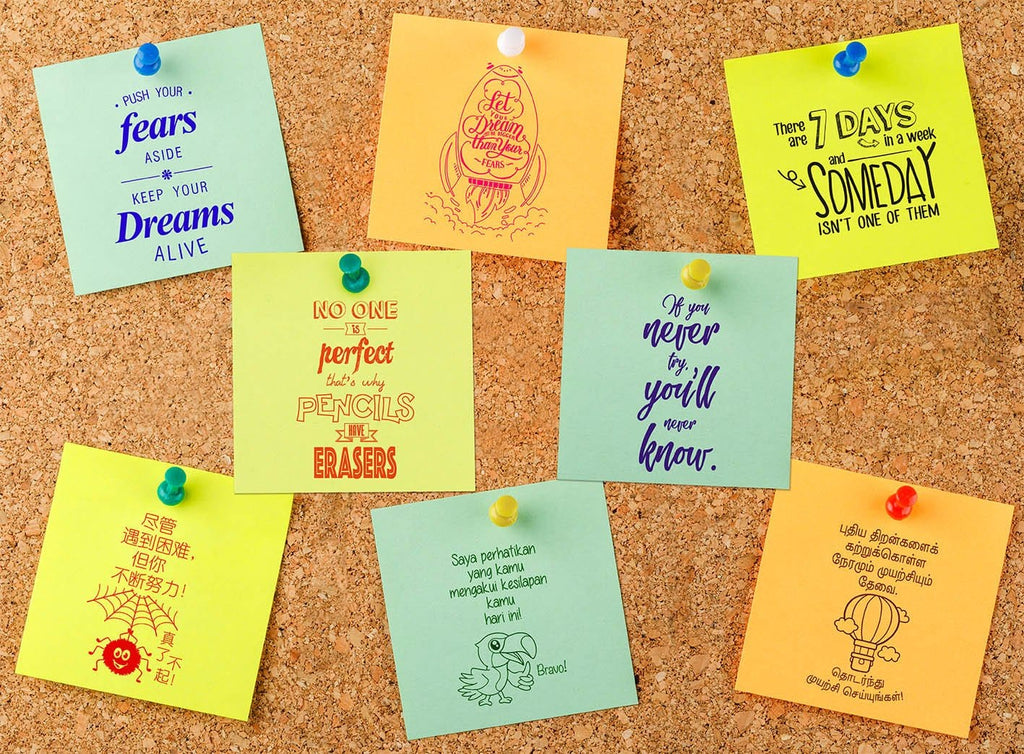 • PUSH YOUR •
fears
ASIDE
KEEP YOUR
Dreams
ALIVE
Let
YOUR
Dream
BE BIGGER
than Your
FEARS
There are 7 DAYS in a week
and
SOMEDAY
ISN'T ONE OF THEM
NO ONE
is
perfect
that's why
PENCILS
HAVE
ERASERS
If you
never
try,
you'll
never
know.
尽管
遇到困难,
但你
不断努力!
真了不起!
Saya perhatikan
yang kamu
mengakui kesilapan
kamu
hari ini!
Bravo!
புதிய திறன்களைக்
கற்றுக்கொள்ள
நேரமும் முயற்சியும்
தேவை.
தொடர்ந்து
முயற்சி செய்யுங்கள்!